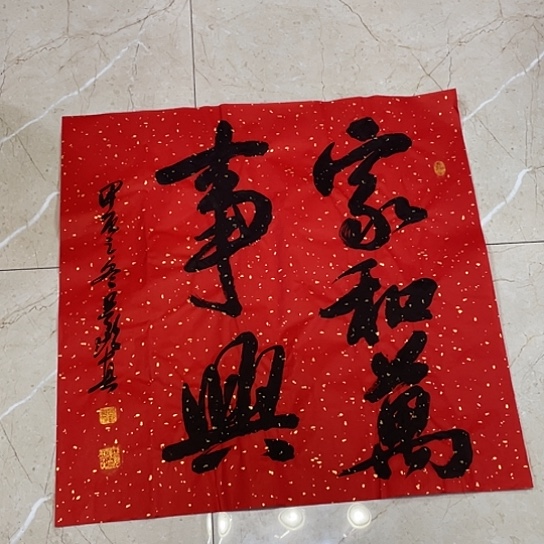 家和萬
事興
甲辰之冬